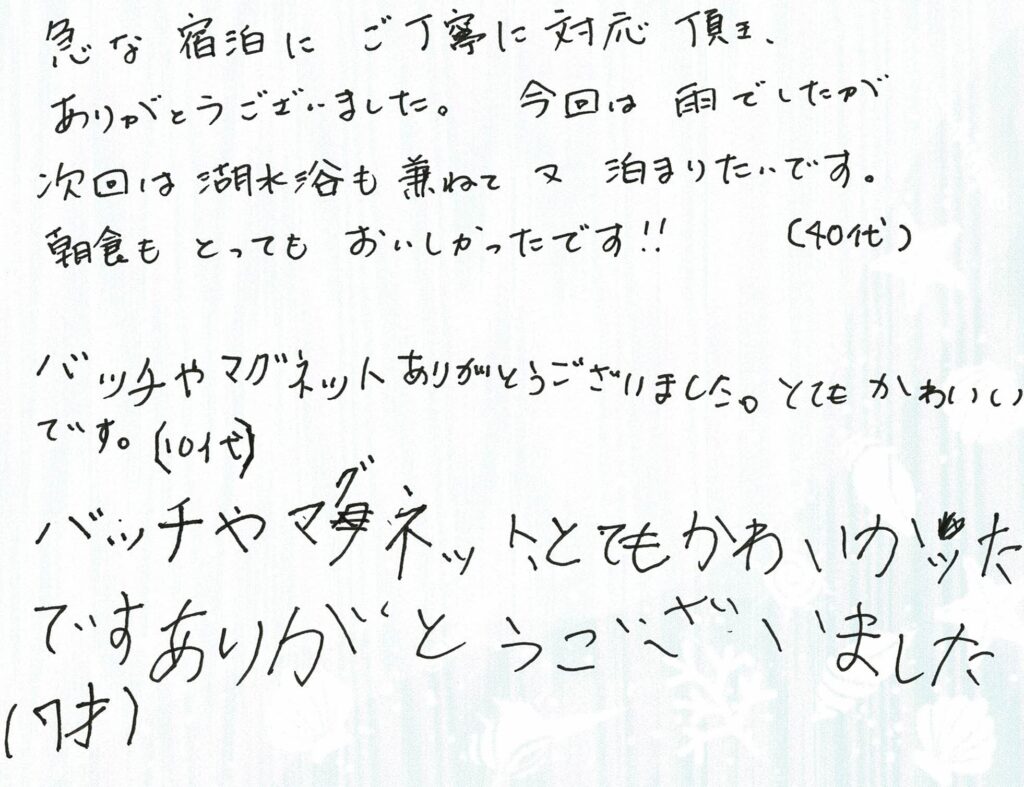 急な宿泊に ご丁寧に対応 頂き、
ありがとうございました。 今回は 雨でしたが
次回は湖水浴も兼ねて 又 泊まりたいです。
朝食も とっても おいしかったです!! (40代)
バッチやマグネットありがとうございました。とてもかわいい
です。(10代)
バッチやマグネット、とてもかわいかッた
ですありがとうございました
(7才)